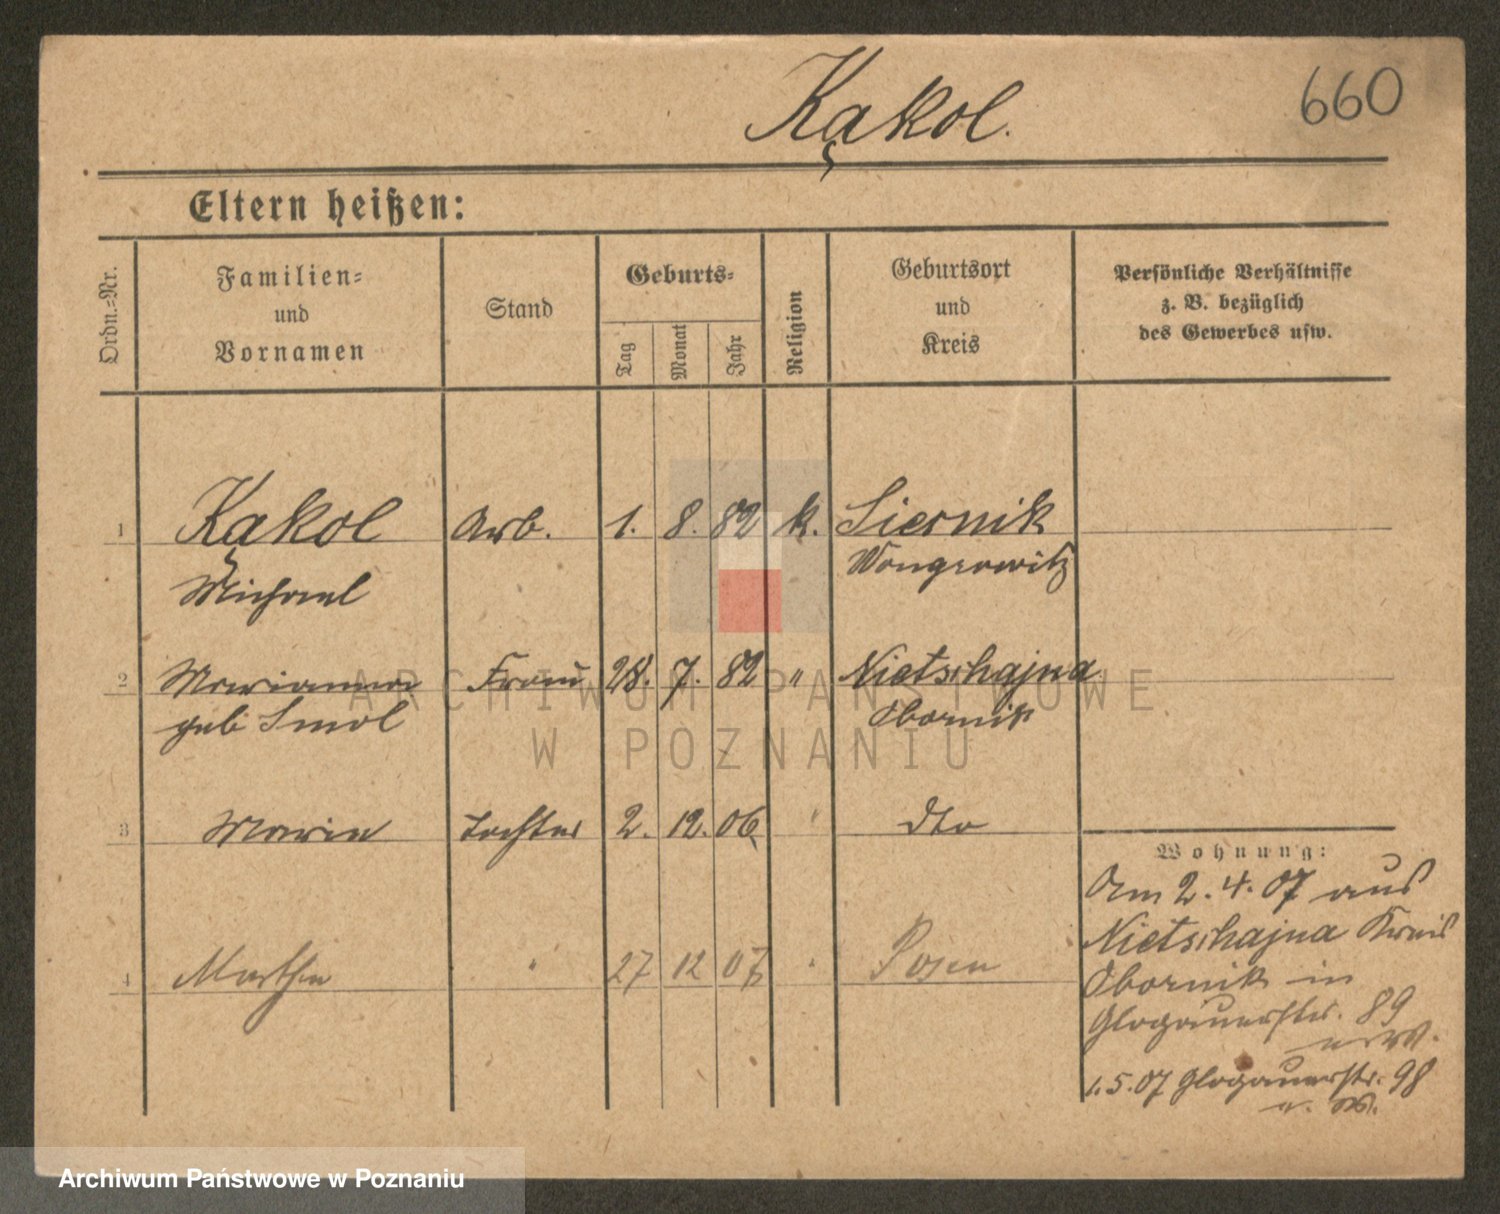 Kąkol.
660
Eltern heißen:
Ordn.=Nr.
Familien=
und
Vornamen
Stand
Geburts=
Tag
Monat
Jahr
Religion
Geburtsort
und
Kreis
Persönliche Verhältnisse
z. B. bezüglich
des Gewerbes usw.
1 Kąkol Arb. 1. 8. 82 k. Siernik
Michael Wongrowitz
2 Marianna Frau 28. 7. 82 " Nietschajna
geb Smol Obornik
3 Marie Tochter 2. 12. 06 " dto
4 Martha " 27 12 07 " Posen
Wohnung:
Am 2.4.07 aus
Nietschajna Kreis
Obornik in
Glogauerstr. 89
1.5.07 Glogauerstr. 98
ARCHIWUM PAŃSTWOWE
W POZNANIU
Archiwum Państwowe w Poznaniu